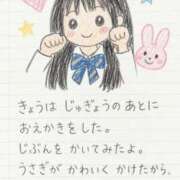 きょうは じゅぎょうの あとに
おえかきをした。
じぶんを かいてみたよ。
うさぎが かわいく かけたから、